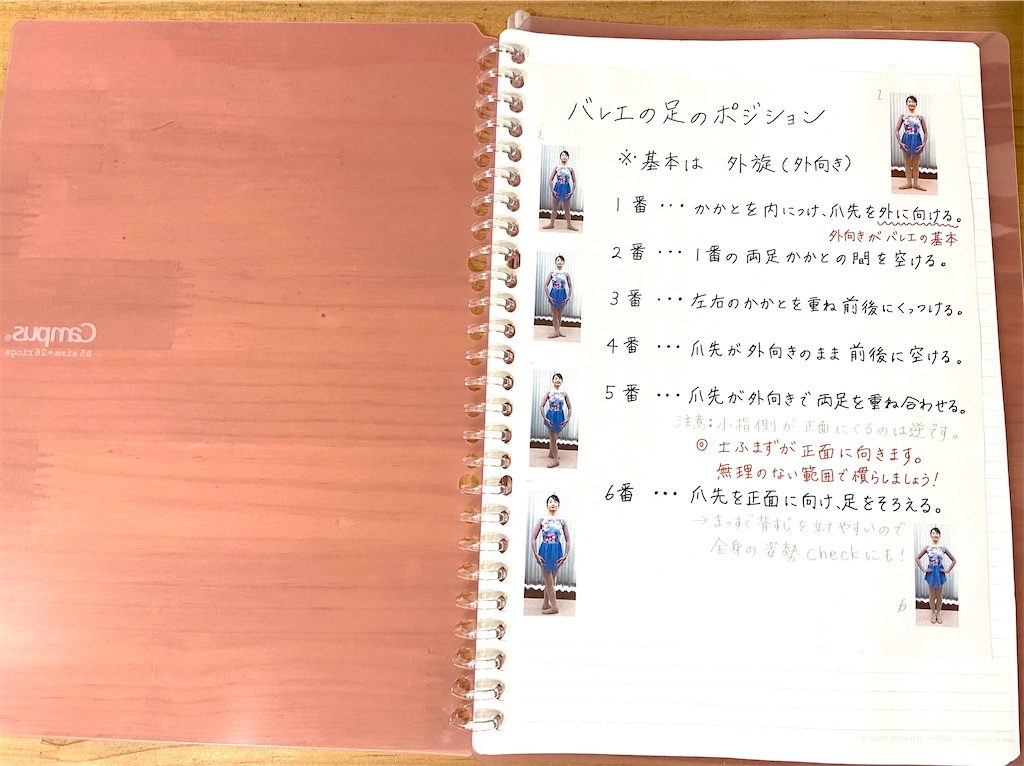 バレエの足のポジション
※基本は 外旋(外向き)
1番 ・・・ かかとを内につけ、爪先を外に向ける。
外向きがバレエの基本
2番 ・・・ 1番の両足かかとの間を空ける。
3番 ・・・ 左右のかかとを重ね前後にくっつける。
4番 ・・・ 爪先が外向きのまま前後に空ける。
5番 ・・・ 爪先が外向きで両足を重ね合わせる。
注意:小指側が正面にくるのは逆です。
◎ 土ふまずが正面に向きます。
無理のない範囲で慣らしましょう!
6番 ・・・ 爪先を正面に向け、足をそろえる。
→ まっすぐ背すじを立てやすいので
全身の姿勢checkにも!
1
2
6
Campus®
B5 size・26 rings